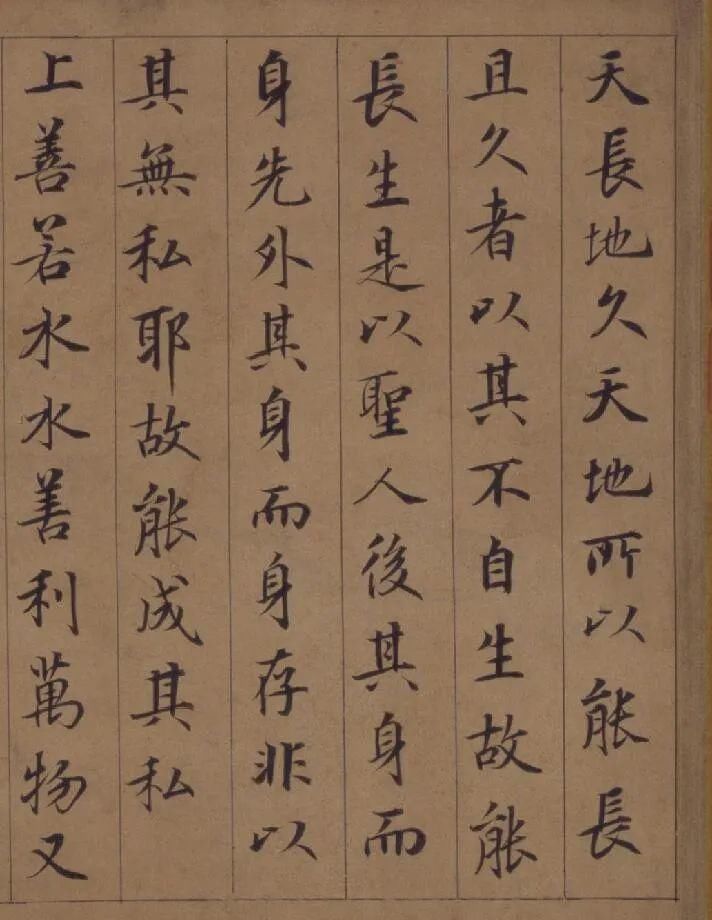 天長地久天地所以能長
且久者以其不自生故能
長生是以聖人後其身而
身先外其身而身存非以
其無私耶故能成其私
上善若水水善利萬物又